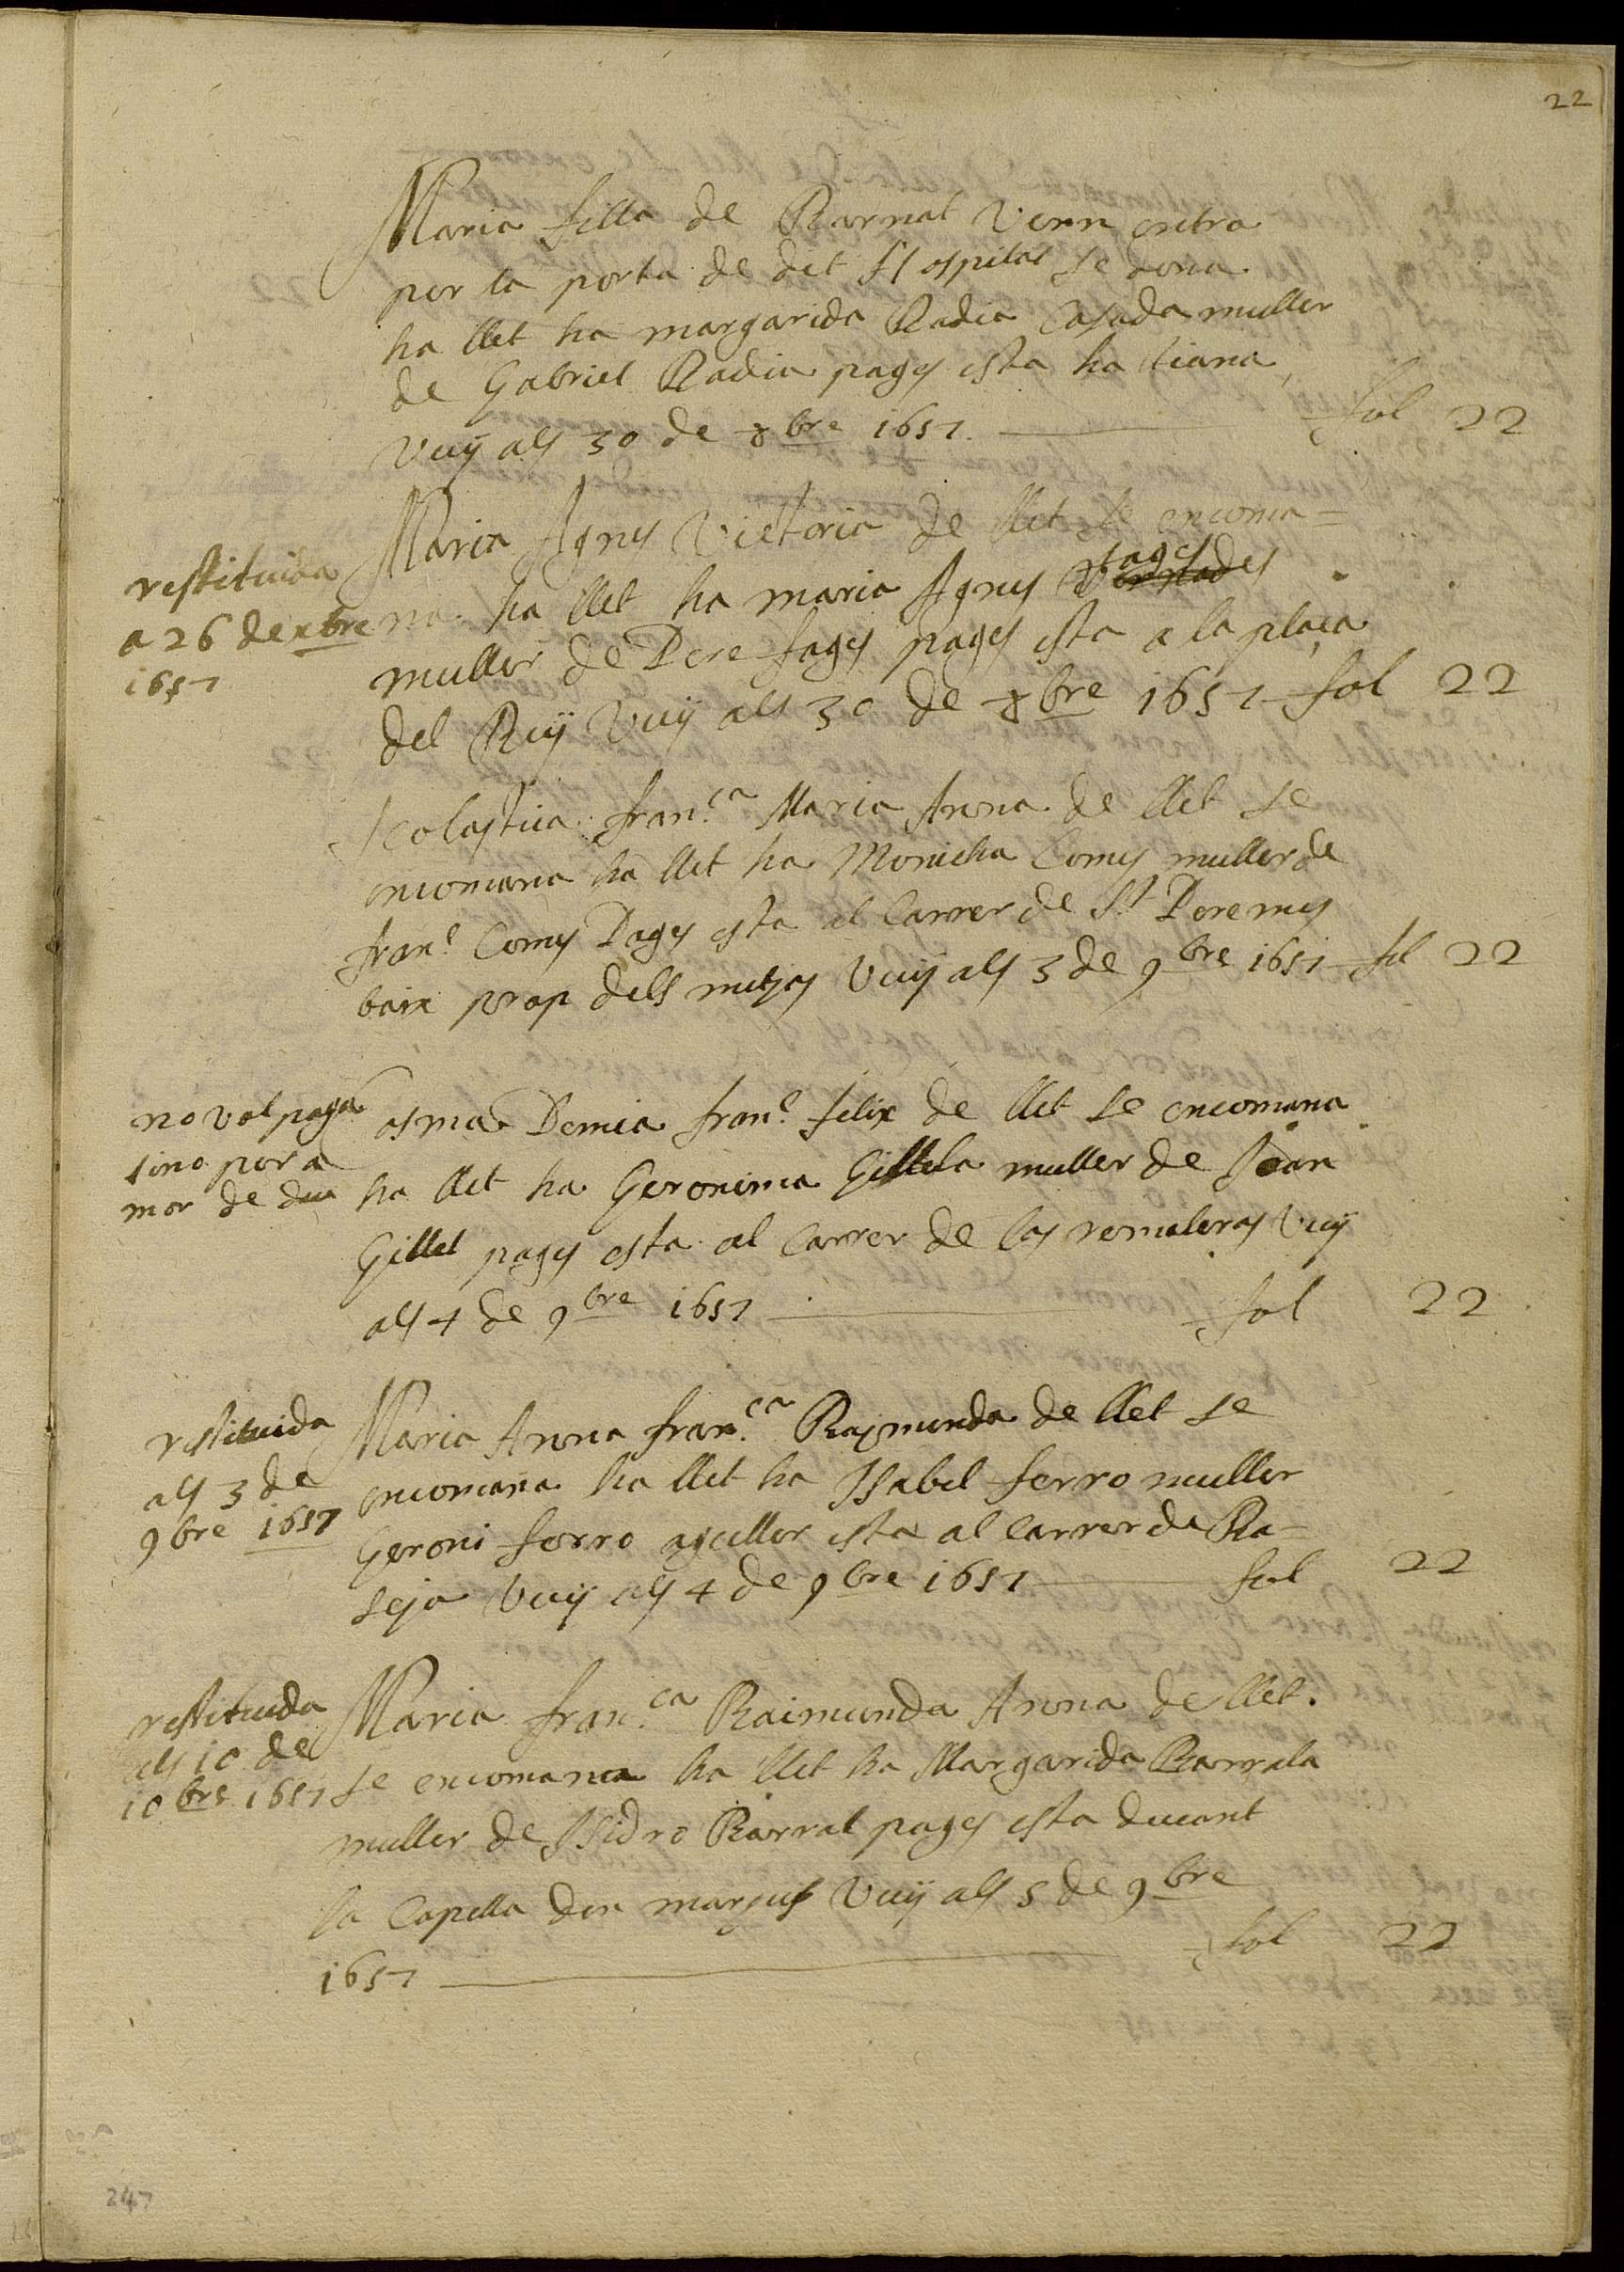 22
Maria filla de Barnat Vern entra
por la porta de dit Hospital se dona
ha llet ha margarida Badia Casada muller
de Gabriel Badia pages esta ha tiana
Vuÿ als 30 de 8bre 1657 fol 22
restituida
a 26 de xbre
1657
Maria Agnes Victoria de llet se encoma=
na ha llet ha maria Agnes fages
muller de Pere fages pages esta a la plaça
del Reÿ Vuÿ als 30 de 8bre 1657 fol 22
Scolastica fran.ca Maria Anna de llet se
encomana ha llet ha Monicha Comes muller de
fran.c Comes Pages esta al Carrer de St Pere mes
baix prop dels mitjes Vuÿ als 3 de 9bre 1657 fol 22
no vol paga
sino per a
mor de deu
osma Demia fran.c felix de llet se encomana
ha llet ha Geronima Gillela muller de Joan
Gillel pages esta al Carrer de las remaleras Vuÿ
als 4 de 9bre 1657 fol 22
restituida
als 3 de
9bre 1657
Maria Anna fran.ca Rajmunda de llet se
encomana ha llet ha Isabel ferro muller
Geroni ferro aguller esta al Carrer de Ba=
seja Vuÿ als 4 de 9bre 1657 fol 22
restituida
als 10 de
10bre 1657
Maria fran.ca Raimunda Anna de llet
se encomana ha llet ha Margarida Barrala
muller de Isidro Barral pages esta devant
la Capella den marcus Vuÿ als 5 de 9bre
1657 fol 22
247